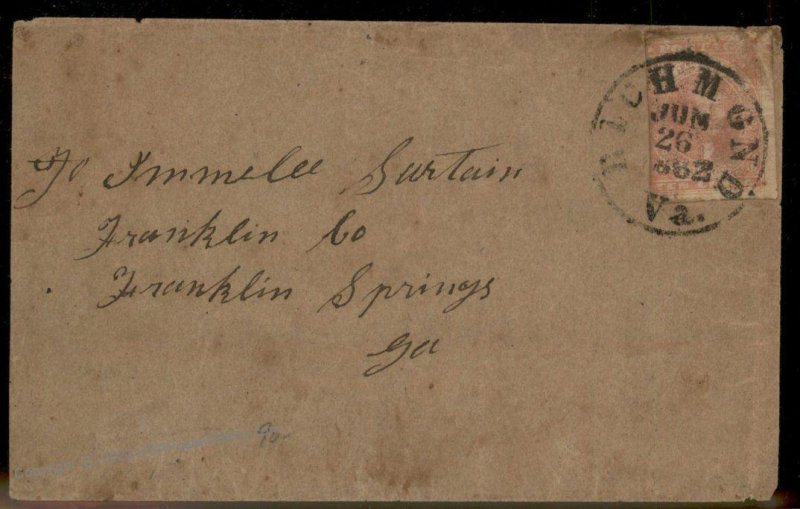 RICHMOND
JUN
26
1862
Va.
To Immelee Sartain
Franklin Co
Franklin Springs
Ga